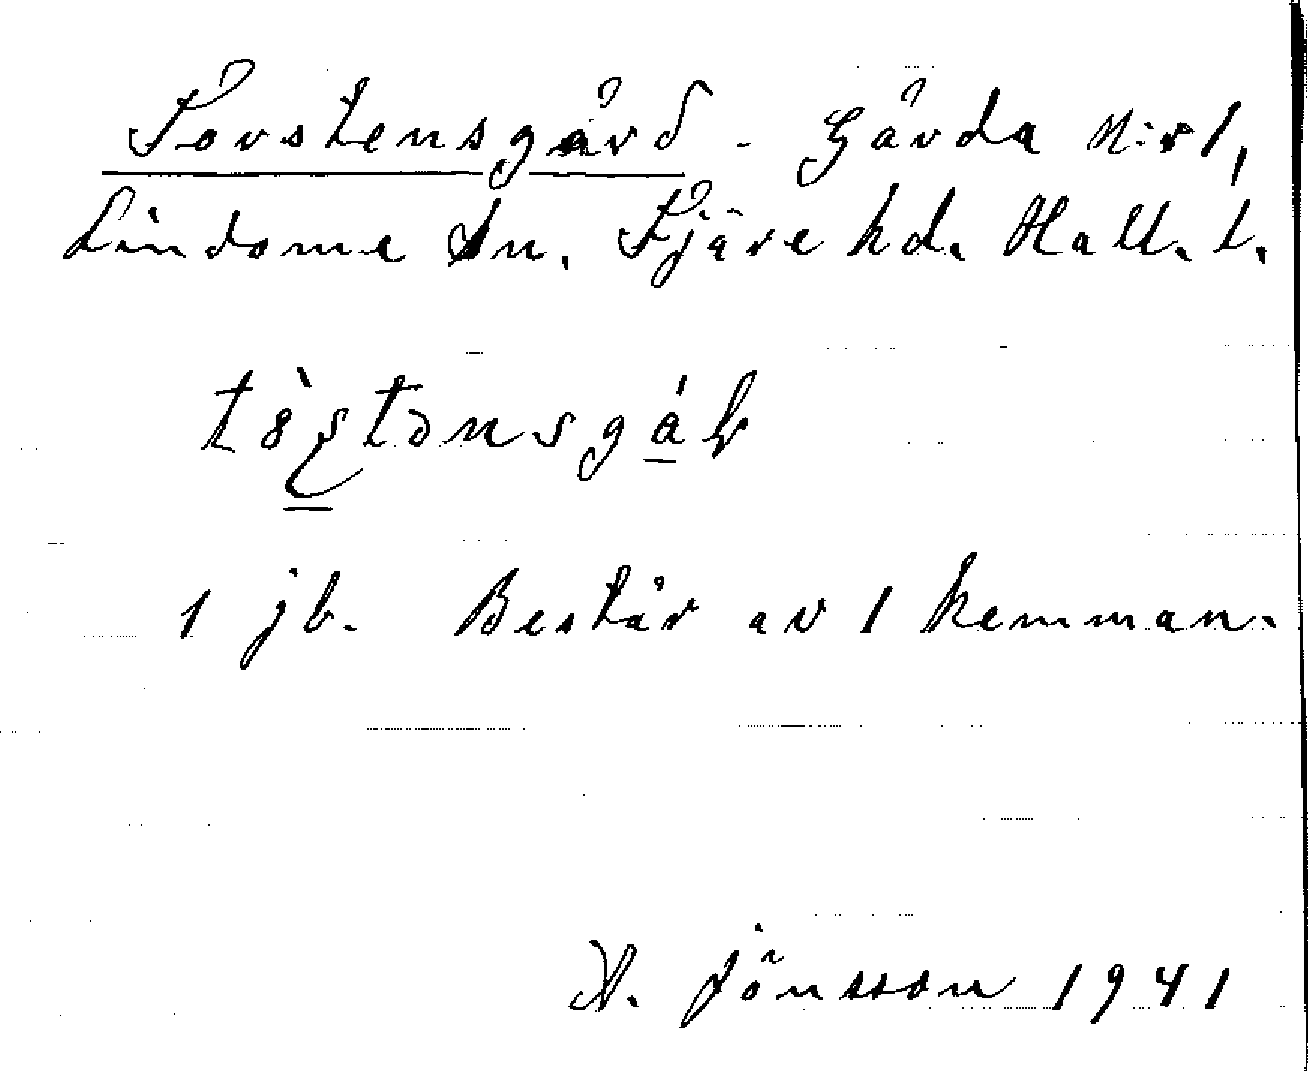 Torstensgård - Gårda N:r 1,
Lindome sn. Fjäre hd. Hall. l.
1 jb. Består av 1 hemman.
H. Jönsson 1941